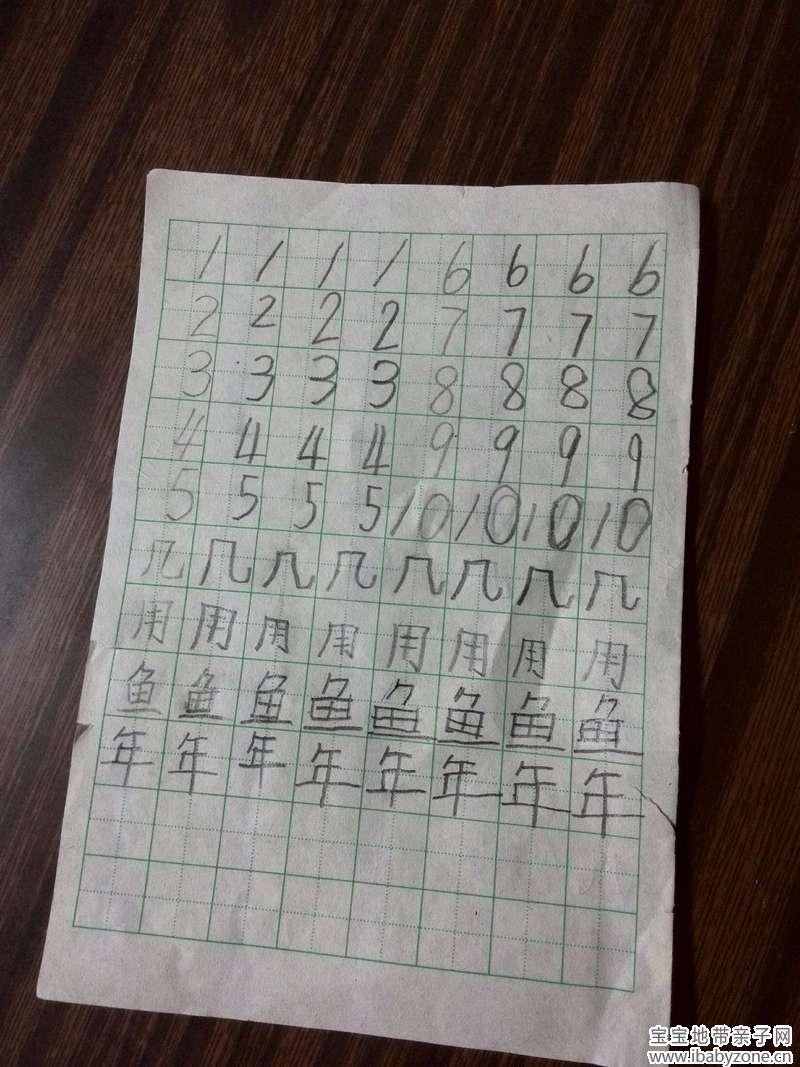 1 1 1 1 6 6 6 6
2 2 2 2 7 7 7 7
3 3 3 3 8 8 8 8
4 4 4 4 9 9 9 9
5 5 5 5 10 10 10 10
几 几 几 几 几 几 几 几
用 用 用 用 用 用 用 用
鱼 鱼 鱼 鱼 鱼 鱼 鱼 鱼
年 年 年 年 年 年 年 年
宝宝地带亲子网
www.ibabyzone.cn